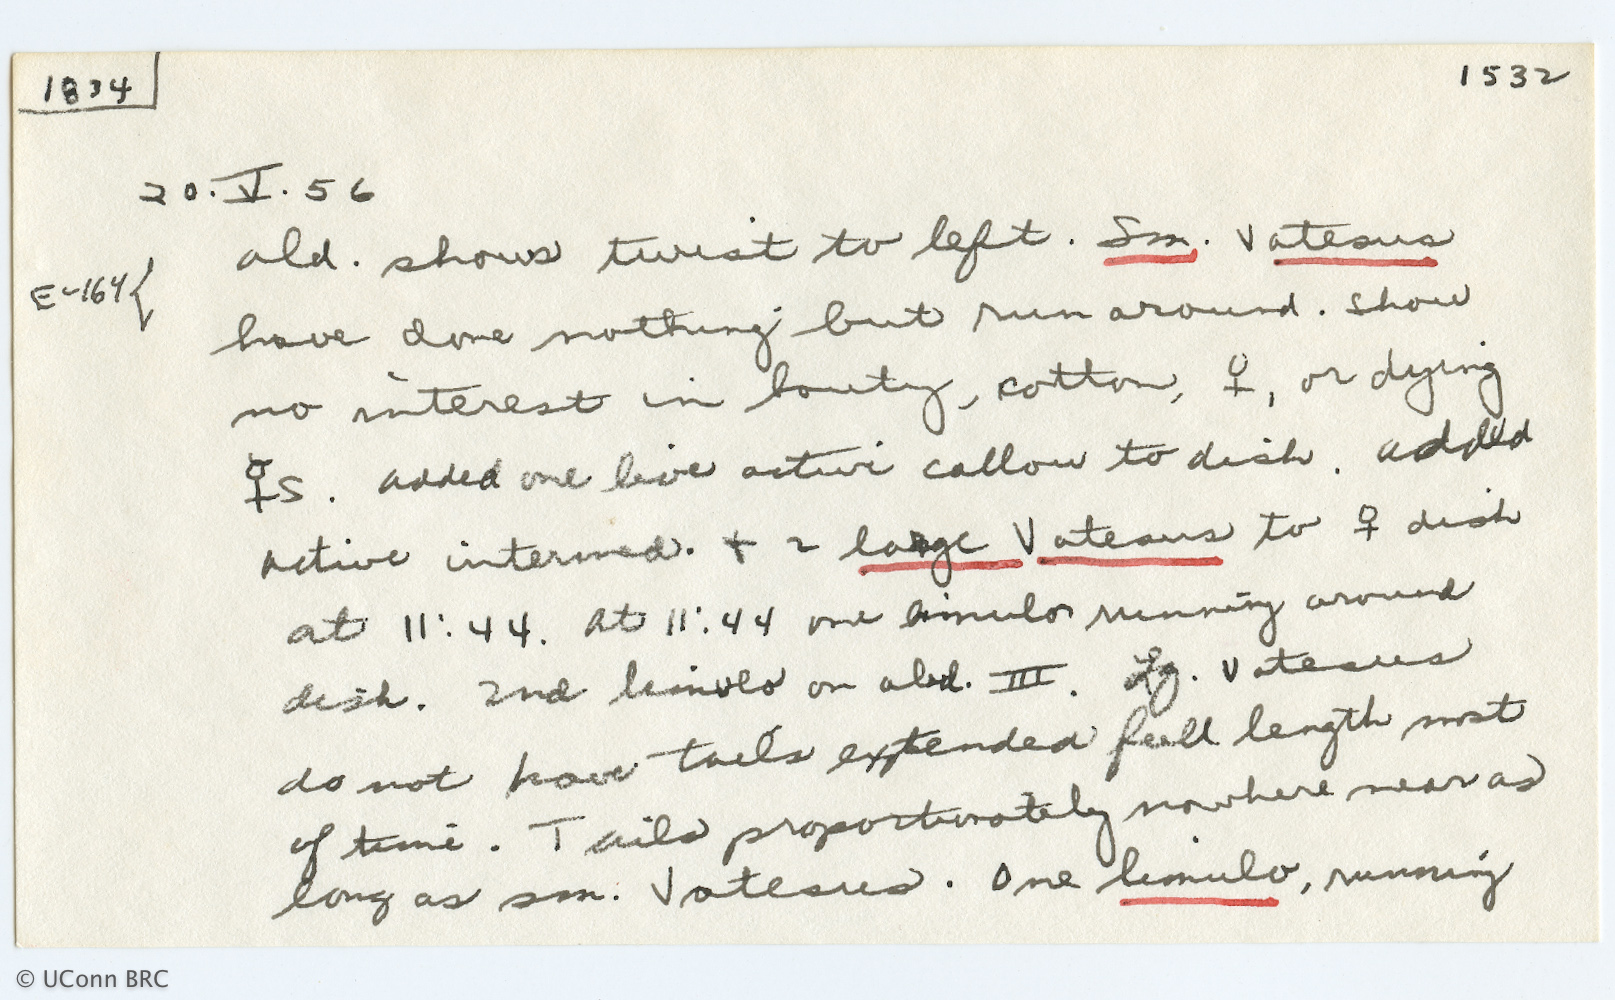 1834
1532
20.V.56
abd. shows twist to left. Sm. Vatesus
E-164{
have done nothing but run around. Show
no interest in booty, cotton, ☿, or dying
☿s. Added one live active callow to dish. Added
active intermed. + 2 large Vatesus to ☿ dish
at 11:44. At 11:44 one limulo running around
dish. 2nd limulo on abd. III. Lg. Vatesus
do not have tails extended full length most
of time. Tails proportionately nowhere near as
long as sm. Vatesus. One limulo, running
© UConn BRC